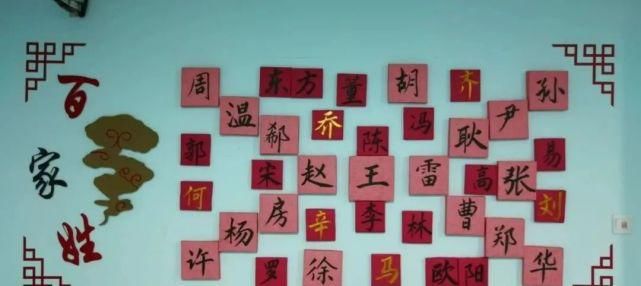 百家姓
周 东方 董 胡 齐 孙
温 郗 乔 陈 冯 耿 尹
郭 宋 赵 王 雷 高 张 易
何 杨 房 辛 李 林 曹 郑 刘
许 罗 徐 马 欧阳 华